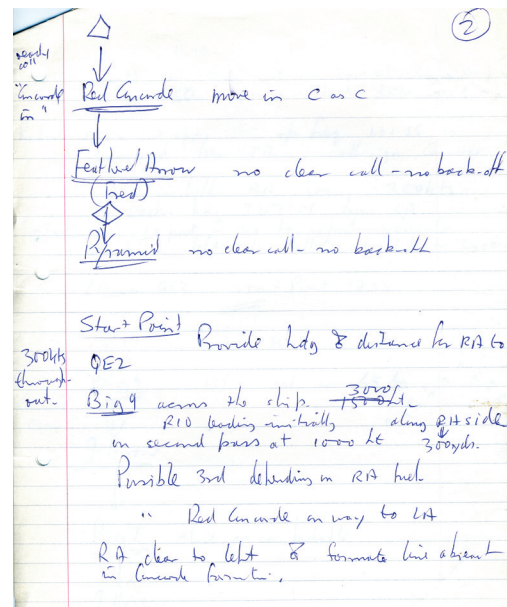 2
ready
call
"Concorde
in"
Red Concorde move in C as C
Feathered Arrow no clear call - no back-off
(red)
Pyramid no clear call - no back-off
Start Point Provide hdg & distance for RA to
QE2
300kts
through-
out.
Big 9 across the ship. 3000ft
1500ft.
R10 leading initially along RH side
on second pass at 1000 ft 300yds.
Possible 3rd depending on RA fuel.
" Red Concorde on way to LA
RA clear to left & formate line abreast
in Concorde